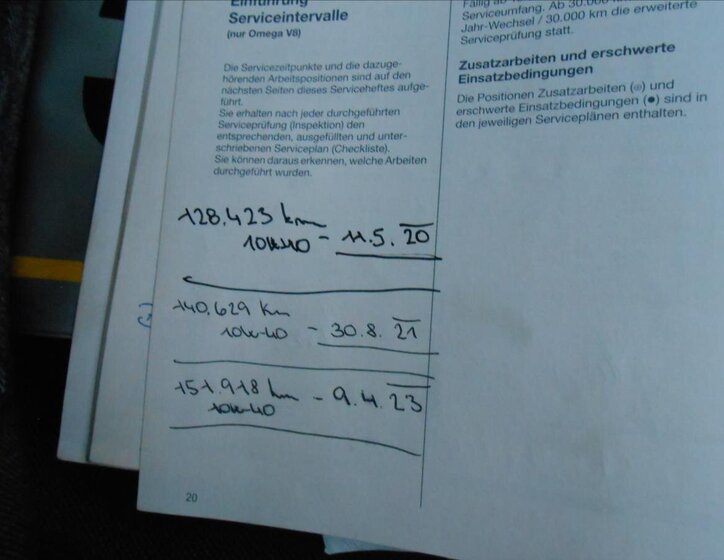 Einführung
Serviceintervalle
(nur Omega V8)
Die Servicezeitpunkte und die dazuge-
hörenden Arbeitspositionen sind auf den
nächsten Seiten dieses Serviceheftes aufge-
führt.
Sie erhalten nach jeder durchgeführten
Serviceprüfung (Inspektion) den
entsprechenden, ausgefüllten und unter-
schriebenen Serviceplan (Checkliste).
Sie können daraus erkennen, welche Arbeiten
durchgeführt wurden.
128.423 km
10W40 - 11.5. 20
140.629 km
10W-40 - 30.8. 21
151.918 km - 9.4. 23
10W-40
20
Serviceumfang. Ab 30.000 km
Jahr-Wechsel / 30.000 km die erweiterte
Serviceprüfung statt.
Zusatzarbeiten und erschwerte
Einsatzbedingungen
Die Positionen Zusatzarbeiten (◎) und
erschwerte Einsatzbedingungen (●) sind in
den jeweiligen Serviceplänen enthalten.